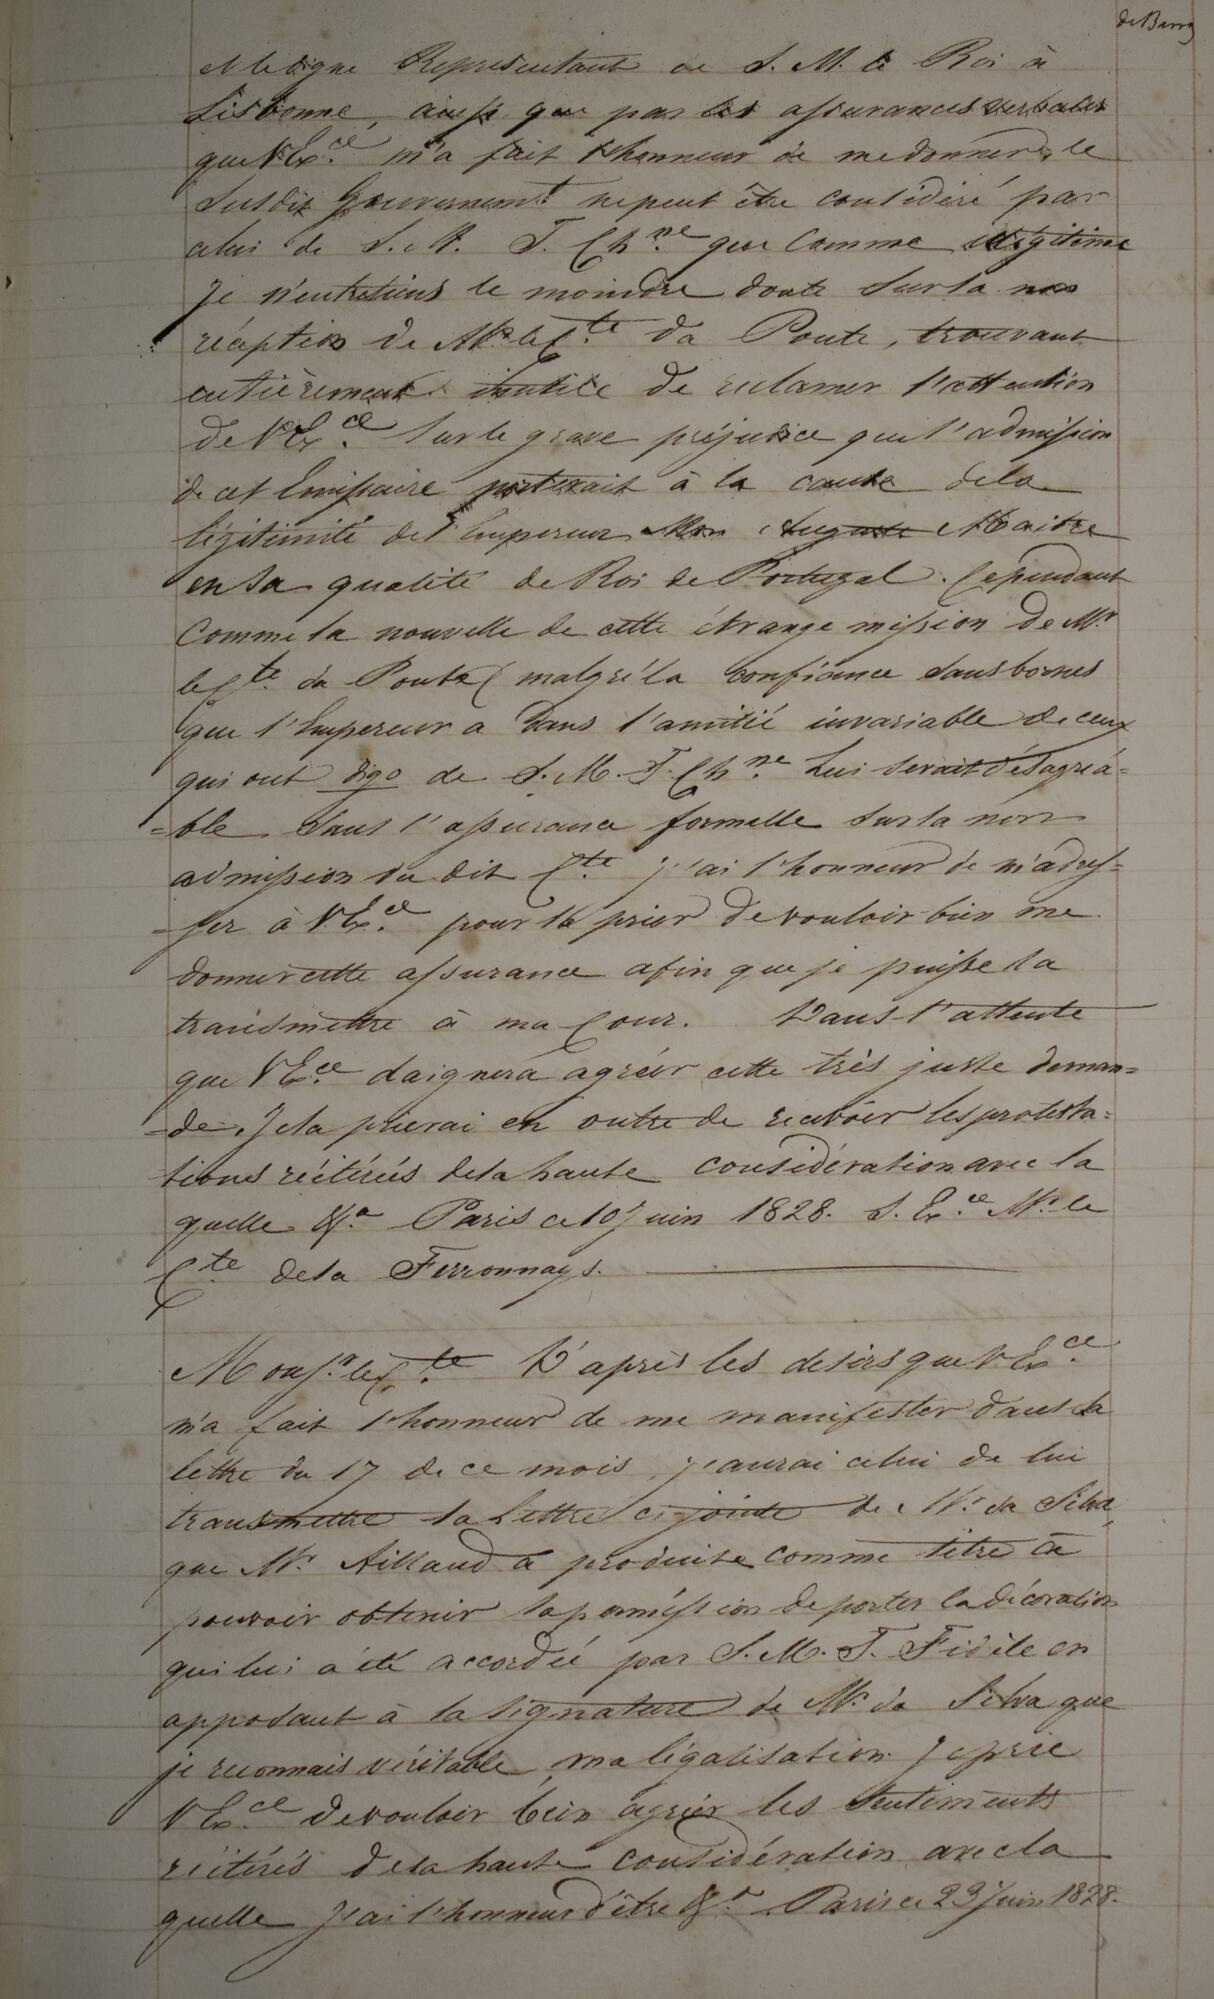 de Barros
M le digne Representant de S. M. le Roi à
Lisbonne, ainsi que par les assurances verbales
que V Ex.ce m'a fait l'honneur de me donner, le
Susdit Gouvernem.t ne peut être considéré par
celui de S. M. T. Ch.ne que Comme illégitime
Je n'entretiens le moindre doute Sur la non
réception de Mr le C.te da Ponte, trouvant
entièrement inutile de reclamer l'attention
de V Ex.ce Sur le grave préjudice que l'admission
de cet Emissaire porterait à la cause de la
légitimité de l'Empereur Mon Auguste Maitre
en Sa qualité de Roi de Portugal. Cependant
Comme la nouvelle de cette étrange mission de Mr
le C.te da Ponte (malgré la confiance Sans bornes
que l'Empereur a dans l'amitié invariable de ceux
qui ont digo de S. M. T. Ch.ne Lui Serait désagréa=
=ble Sans l'assurance formelle Sur la non
admission du dit C.te j'ai l'honneur de m'adres=
=ser à V Ex.ce pour la prier de vouloir bien me
donner cette assurance afin que je puisse la
transmettre à ma Cour. Dans l'attente
que V Ex.ce daignera agréer cette très juste deman=
=de, Je la prierai en outre de recevoir les protesta=
tions réitérées de la haute considération avec la
quelle &.a Paris ce 10 Juin 1828. S. Ex.ce Mr. le
C.te de la Ferronnays.
Monsr. le C.te D'après les desirs que V Ex.ce
m'a fait l'honneur de me manifester dans sa
lettre du 17 de ce mois, j'aurai celui de lui
transmettre la Lettre ci jointe de Mr. da Silva,
que Mr. Aillaud a produite comme titre à
pouvoir obtenir la permission de porter la décoration
qui lui a été accordée par S. M. T. Fidèle en
apposant à la Signature de Mr. da Silva que
je reconnais véritable, ma légalisation. Je prie
V Ex.ce de vouloir bien agréer les Sentiments
réitérés de la haute considération avec la
quelle J'ai l'honneur d'être &.a Paris ce 23 Juin 1828.